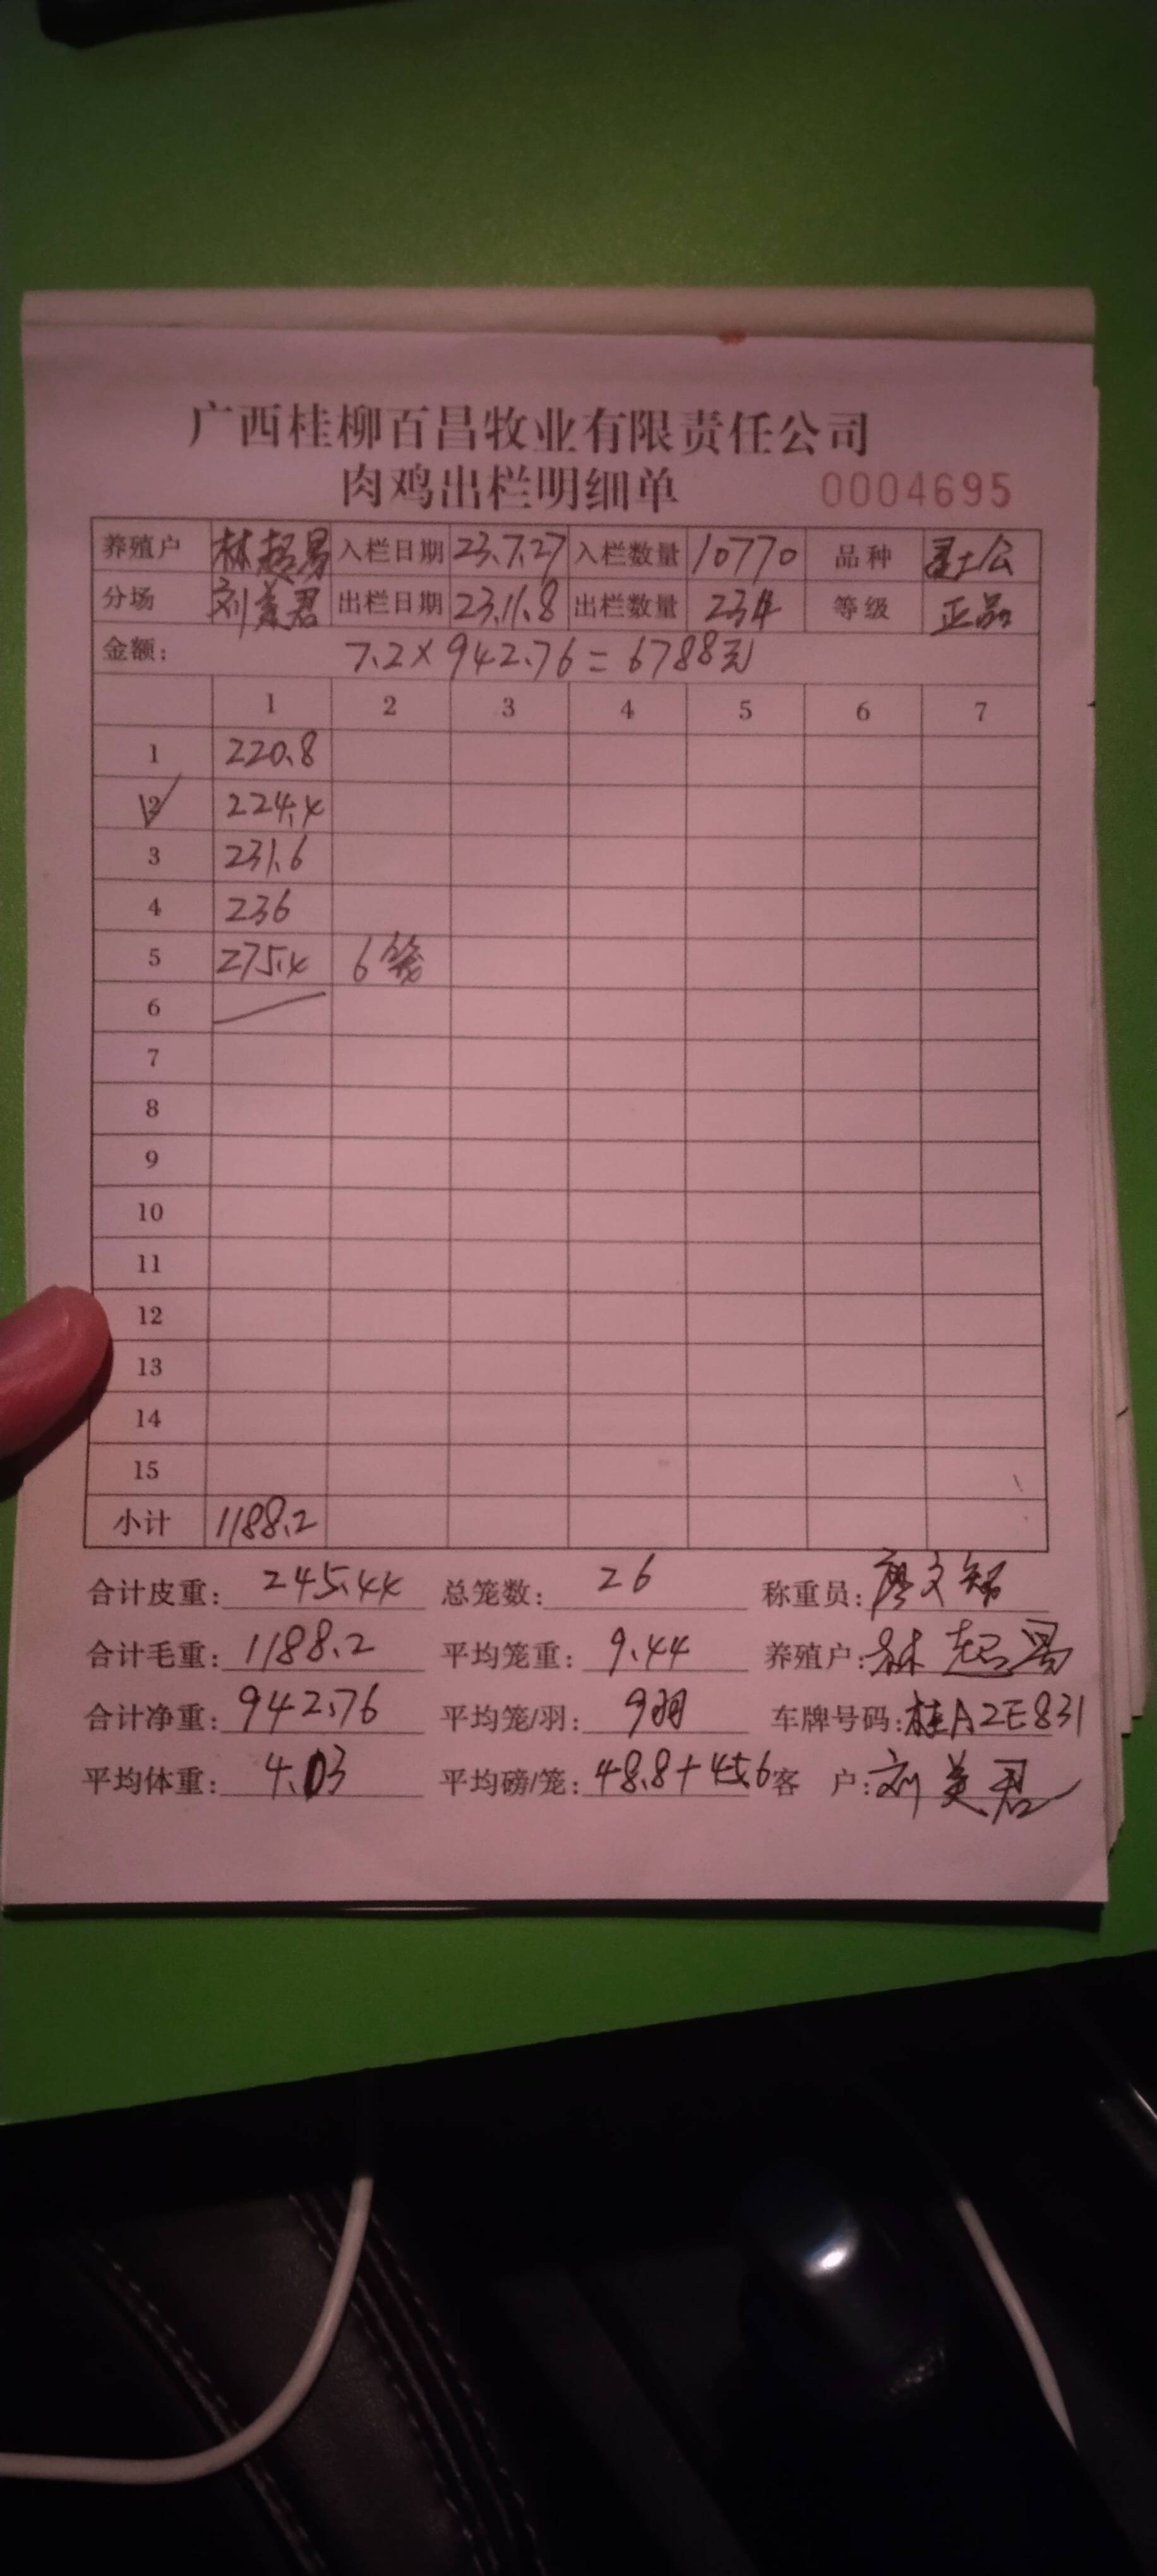 广西桂柳百昌牧业有限责任公司
肉鸡出栏明细单 0004695
养殖户 林超易 入栏日期 23.7.27 入栏数量 10770 品种 土公
分场 刘美君 出栏日期 23.11.8 出栏数量 234 等级 正品
金额: 7.2×942.76=6788元
1 2 3 4 5 6 7
1 220.8
2 224.4
3 231.6
4 236
5 275.4 6笼
6
7
8
9
10
11
12
13
14
15
小计 1188.2
合计皮重: 245.44 总笼数: 26 称重员: 廖文铭
合计毛重: 1188.2 平均笼重: 9.44 养殖户: 林超易
合计净重: 942.76 平均笼/羽: 9羽 车牌号码: 桂A2E831
平均体重: 4.03 平均磅/笼: 48.8+45.6 客户: 刘美君